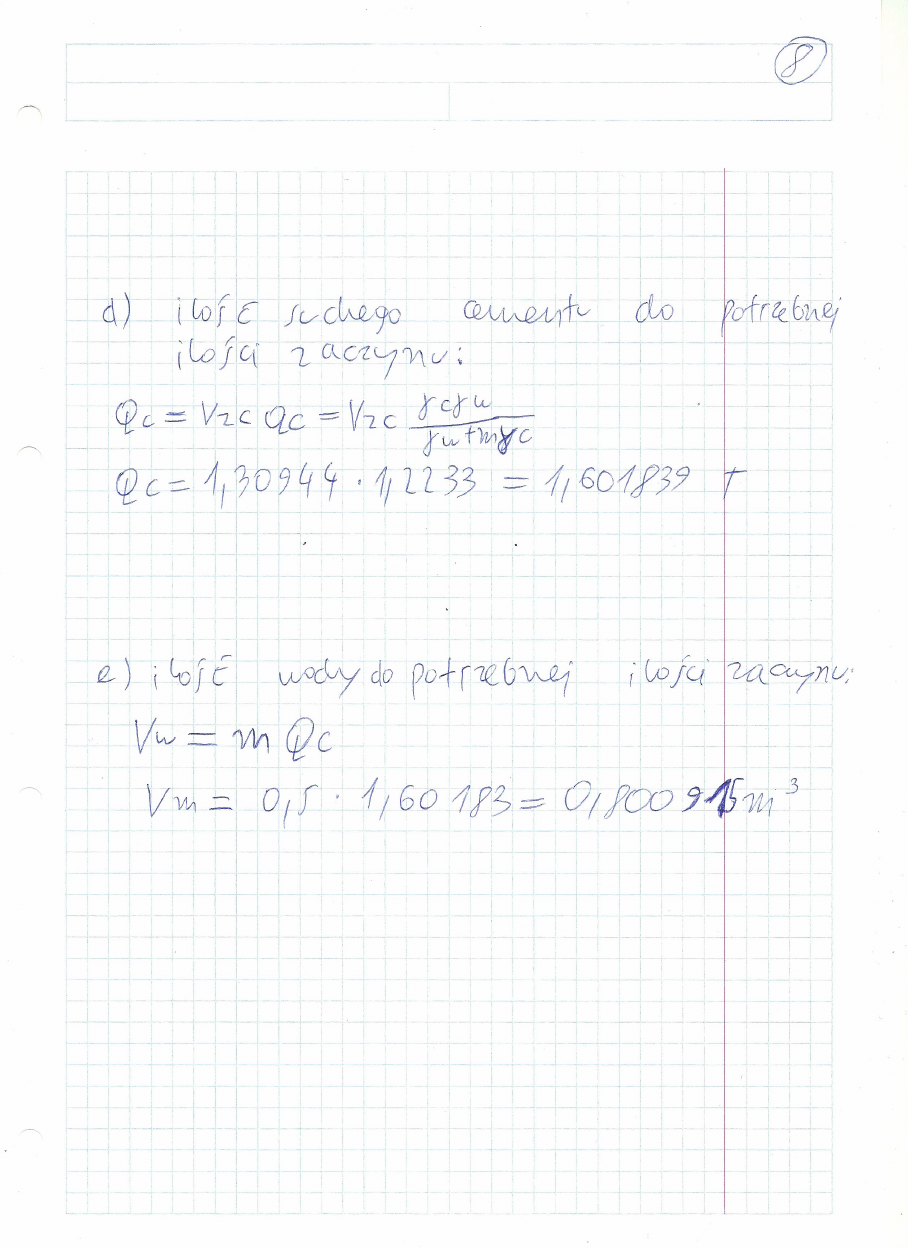 8
d) ilość suchego cementu do potrzebnej
ilości zaczynu:
Qc = Vzc qc = Vzc γcγw / γw+mγc
Qc = 1,30944 · 1,2233 = 1,601839 T
e) ilość wody do potrzebnej ilości zaczynu:
Vw = m Qc
Vm = 0,5 · 1,60183 = 0,800915 m³